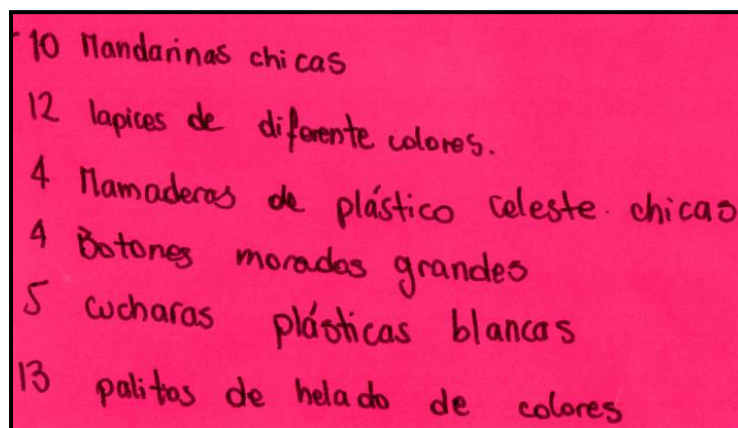 - 10 Mandarinas chicas
12 lapices de diferente colores.
4 Mamaderas de plástico celeste. chicas
4 Botones morados grandes
5 cucharas plásticas blancas
13 palitos de helado de colores